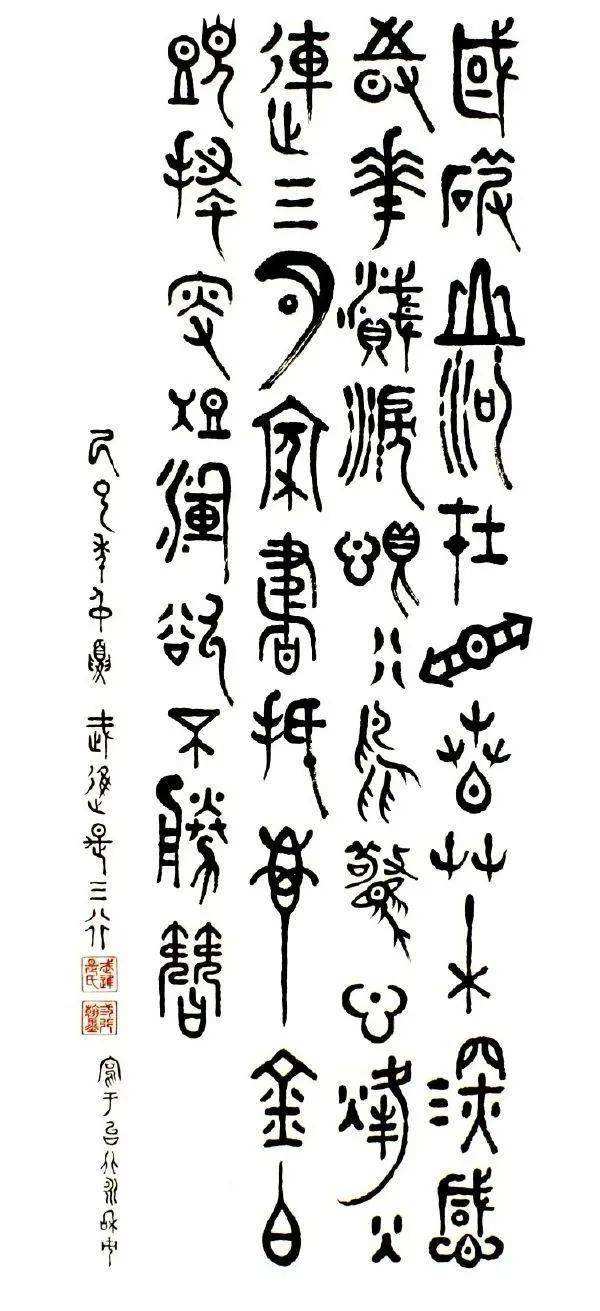 國破山河在城春草木深感
時花濺淚恨別鳥驚心烽火
連三月家書抵萬金白
頭搔更短渾欲不勝簪
年中夏 武進